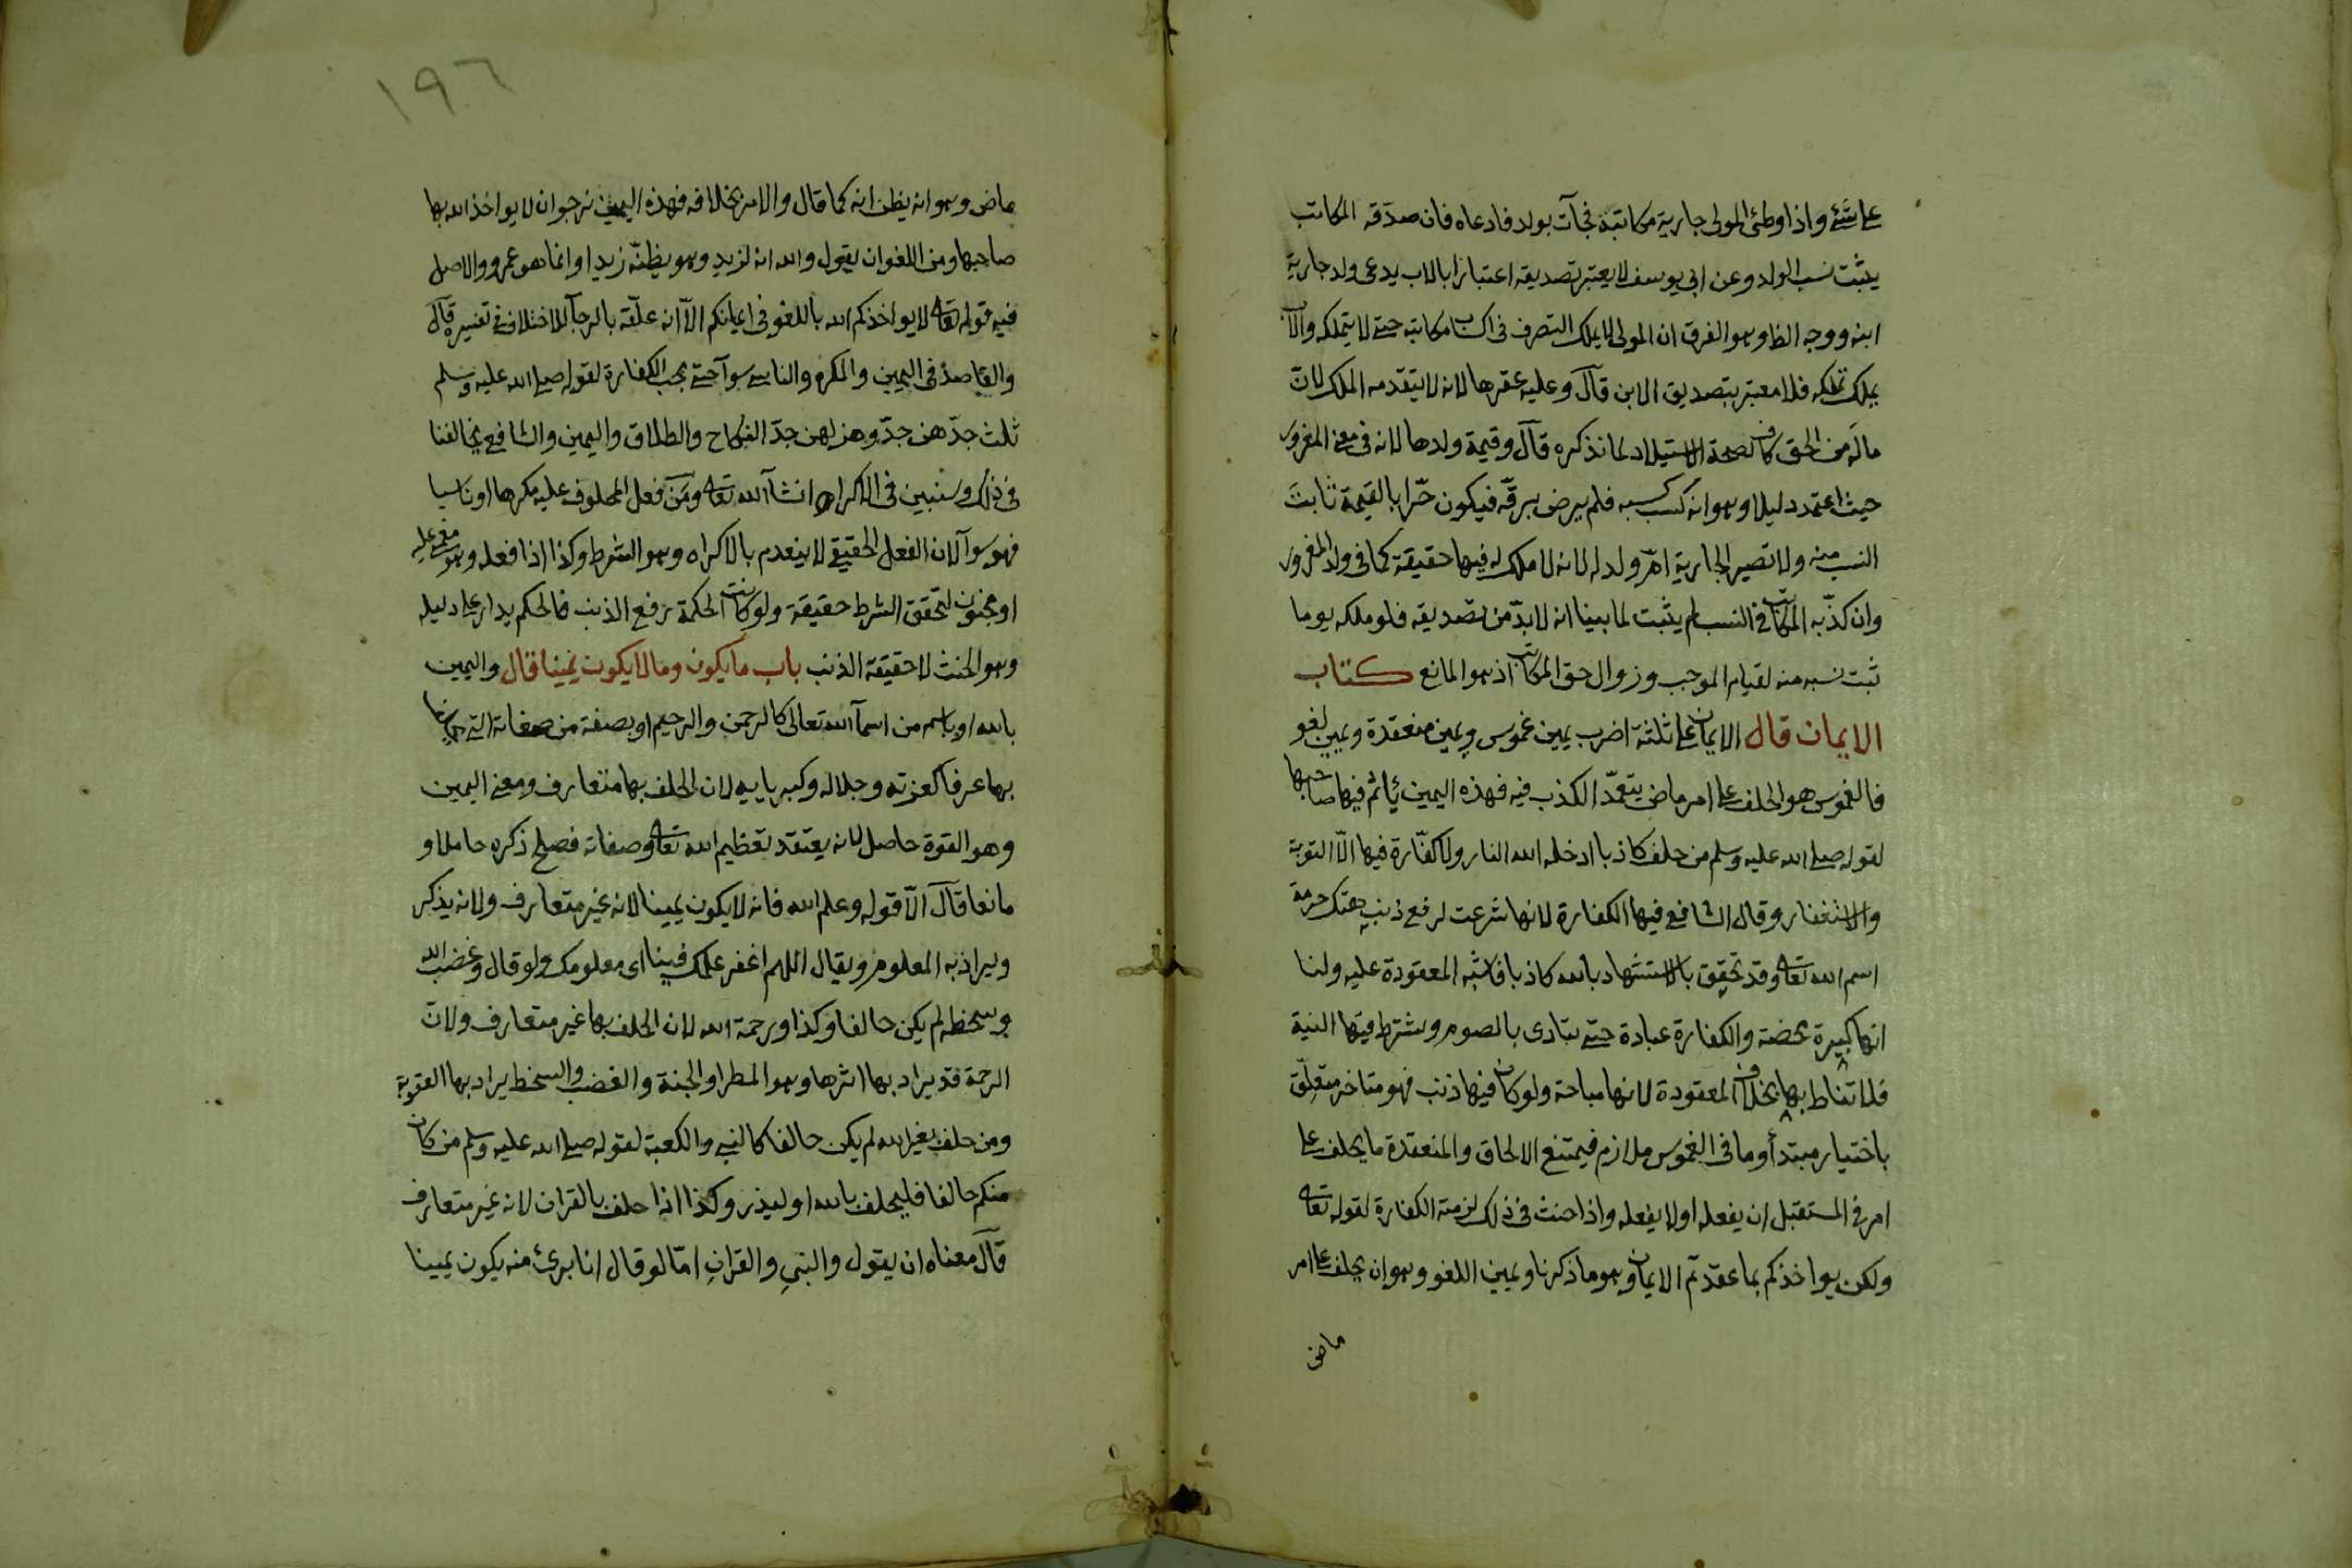 على شئ واذا وطئ المولى جارية مكاتبة فجآت بولد فادعاه فان صدّقه المكاتب
يثبت نسب الولد وعن ابي يوسف لا يعتبر تصديقه اعتبارا بالاب يدعى ولد جارية
ابنه ووجه الظ وهو الفرق ان المولى لا يملك التصرف في اكساب مكاتبه حتى لا يتملكه والاب
يملك تملكه فلا معتبر بتصديق الابن قال وعليه عقرها لانه لا يتقدمه الملك لانّ
ماله من الحق كاف لصحة الاستيلاد لما نذكره قال وقيمة ولدها لانه في معنى المغرور
حيث اعتمد دليلا وهو انه كسب كسبه فلم يرض برقّه فيكون حرّا بالقيمة ثابت
النسب منه ولا تصير الجارية امّ ولد له لانه لا ملك له فيها حقيقة كما في ولد المغرور
وان كذّبه المكاتب في النسب لم يثبت لما بينا انه لا بدّ من تصديقه فلو ملكه يوما
ثبت نسبه منه لقيام الموجب وزوال حق المكاتب اذ هو المانع كتاب
الايمان قال الايمان على ثلثة اضرب يمين غموس ويمين منعقدة ويمين لغو
فالغموس هو الحلف على امر ماض يتعمّد الكذب فيه فهذه اليمين يأثم فيها صاحبها
لقوله صلى الله عليه وسلم من حلف كاذبا ادخله الله النار ولا كفّارة فيها الّا التوبة
والاستغفار وقال الشافعي فيها الكفارة لانها شرعت لرفع ذنب هتك حرمة
اسم الله تعالى وقد تحقق بالاستشهاد بالله كاذبا فاشبه المعقودة عليه ولنا
انها كبيرة محضة والكفارة عبادة حتى تتادى بالصوم ويشترط فيها النية
فلا تناط بها بخلاف المعقودة لانها مباحة ولو كان فيها ذنب فهو متاخر متعلّق
باختيار مبتدأ وما في الغموس ملازم فيمتنع الالحاق والمنعقدة ما يحلف على
امر في المستقبل ان يفعله او لا يفعله واذا حنث في ذلك لزمته الكفارة لقوله تعالى
ولكن يواخذكم بما عقدتم الايمان وهو ما ذكرنا ويمين اللغو وهو ان يحلف على امر
ماض
١٩٦
ماض وهو انه يظن انه كما قال والامر بخلافه فهذه اليمين نرجو ان لا يواخذ الله بها
صاحبها ومن اللغو ان يقول والله انه لزيد وهو يظنّه زيدا وانما هو عمرو والاصل
فيه قوله تعالى لا يواخذكم الله باللغو في ايمانكم الّا انه علّقه بالرجآ للاختلاف في تفسيره قال
والقاصد في اليمين والمكره والناسي سوآ حتى يجب الكفارة لقوله صلى الله عليه وسلم
ثلث جدّهن جدّ وهزلهن جدّ النكاح والطلاق واليمين والشافعي يخالفنا
في ذلك وسنبين في الاكراه انشآ الله تعالى ومن فعل المحلوف عليه مكرها او ناسيا
فهو سوآ لان الفعل الحقيقي لا ينعدم بالاكراه وهو الشرط وكذا اذا فعله وهو مغمى عليه
او مجنون لتحقق الشرط حقيقة ولو كانت الحكمة رفع الذنب فالحكم يدار على دليله
وهو الحنث لا حقيقة الذنب باب ما يكون وما لا يكون يمينا قال واليمين
بالله او باسم من اسمآ الله تعالى كالرحمن والرحيم او بصفة من صفاته التي
بها عرفا كعزته وجلاله وكبريايه لان الحلف بها متعارف ومعنى اليمين
وهو القوة حاصل لانه يعتقد تعظيم الله تعالى وصفاته فصلح ذكره حاملا و
مانعا قال الّا قوله وعلم الله فانه لا يكون يمينا لانه غير متعارف ولانه يذكر
ويراد به المعلوم ويقال اللهم اغفر علمك فينا اى معلومك ولو قال وغضب الله
وسخطه لم يكن حالفا وكذا ورحمة الله لان الحلف بها غير متعارف ولانّ
الرحمة قد يراد بها اثرها وهو المطر او الجنة والغضب والسخط يراد بها العقوبة
ومن حلف بغير الله لم يكن حالفا كالنبي والكعبة لقوله صلى الله عليه وسلم من كان
منكم حالفا فليحلف بالله او ليذر وكذا اذا حلف بالقران لانه غير متعارف
قال معناه ان يقول والنبيِ والقرانِ امّا لو قال انا برئ منه يكون يمينا